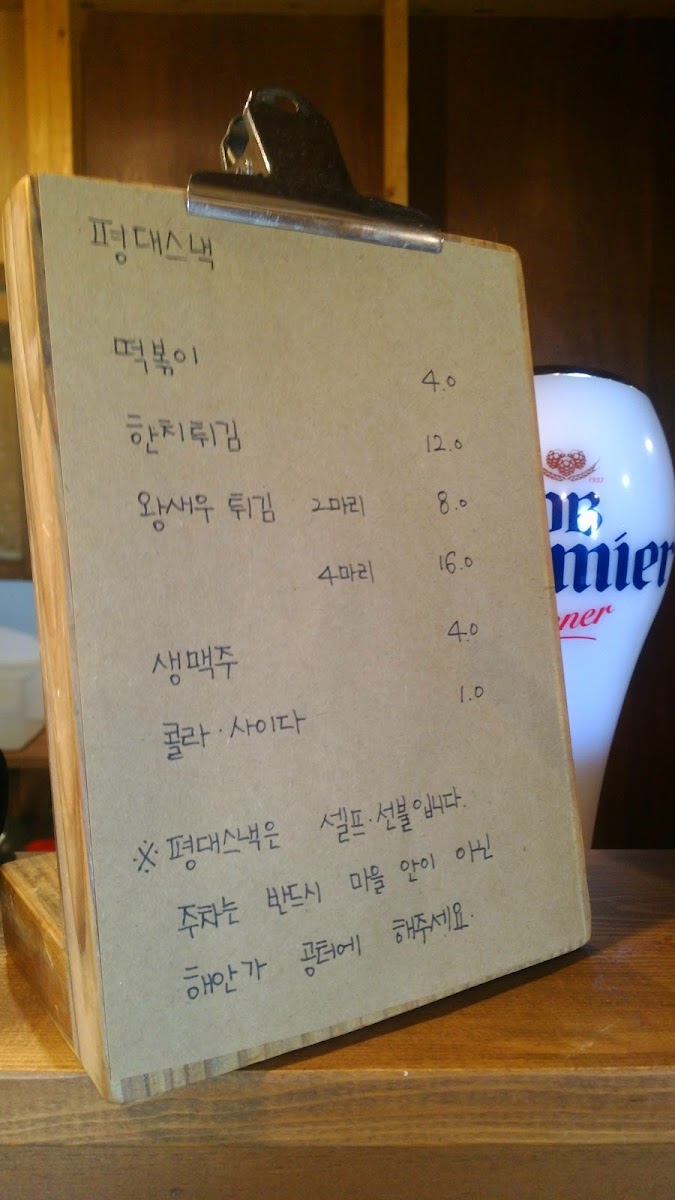 평대스낵
떡볶이 4.0
한치튀김 12.0
왕새우 튀김 2마리 8.0
4마리 16.0
생맥주 4.0
콜라·사이다 1.0
※ 평대스낵은 셀프·선불입니다.
주차는 반드시 마을 안이 아닌
해안가 공터에 해주세요.
1937
mier